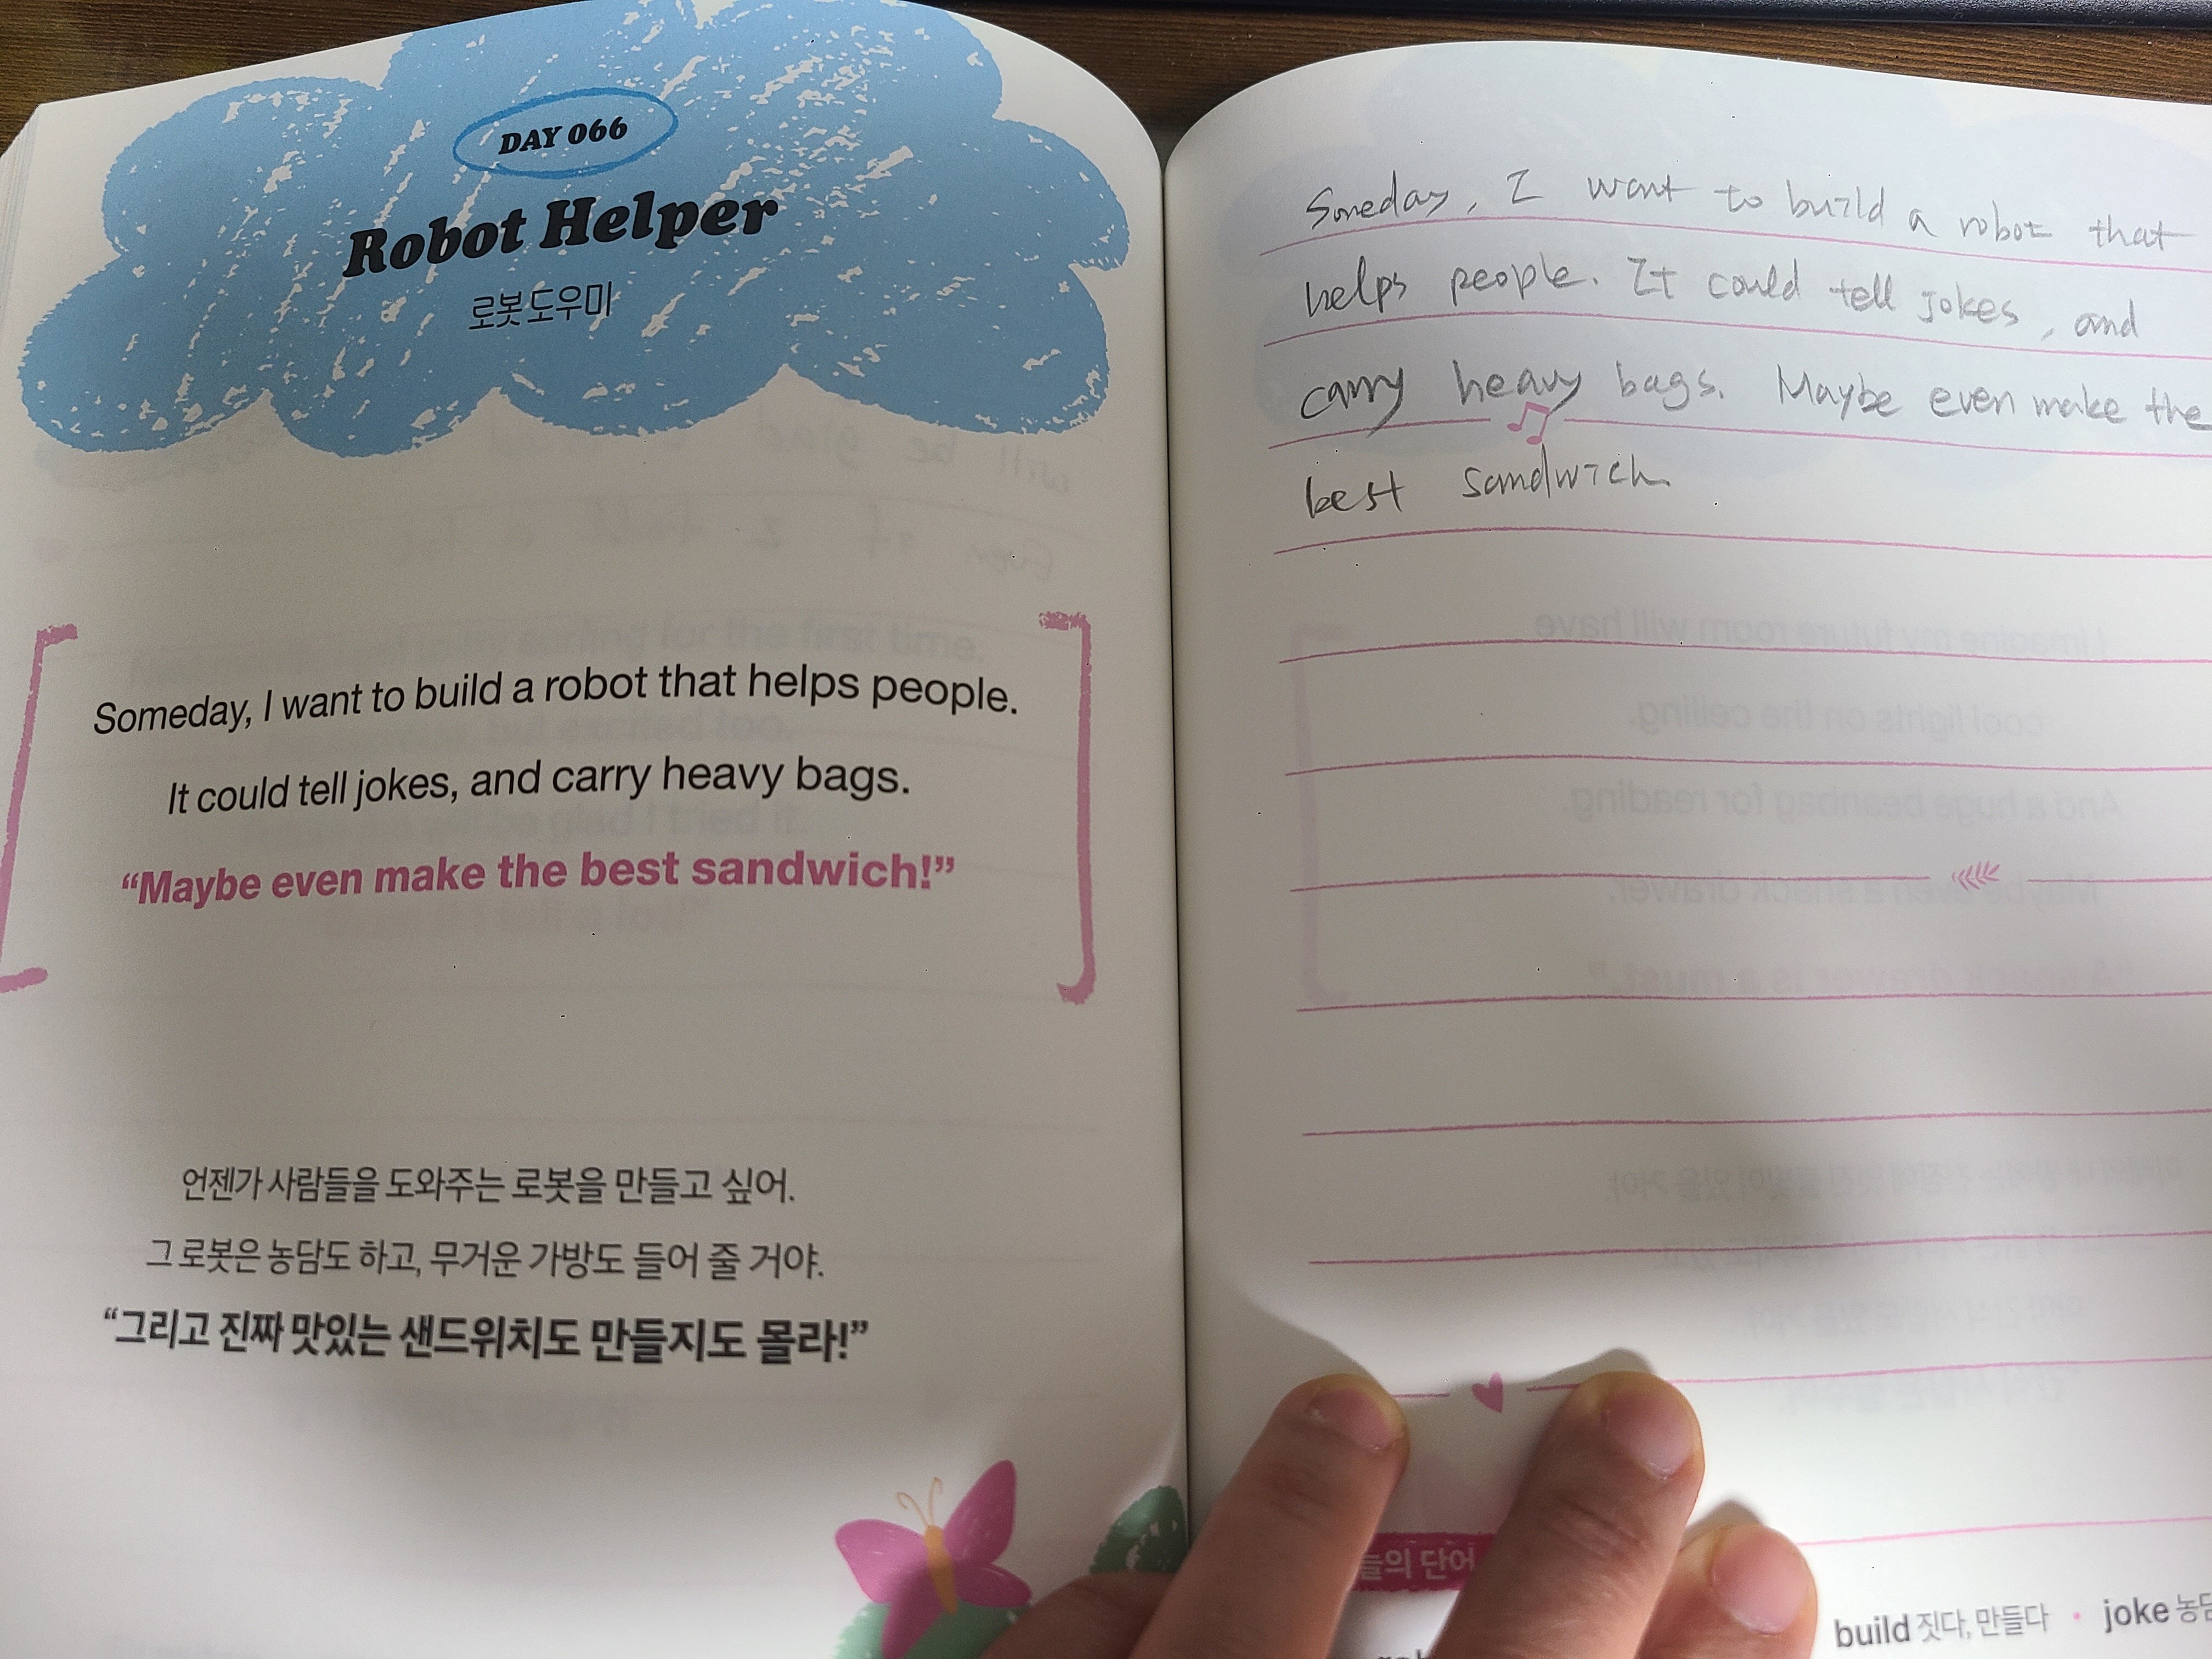 DAY 066
Robot Helper
로봇 도우미
Someday, I want to build a robot that helps people.
It could tell jokes, and carry heavy bags.
“Maybe even make the best sandwich!”
언젠가 사람들을 도와주는 로봇을 만들고 싶어.
그 로봇은 농담도 하고, 무거운 가방도 들어 줄 거야.
“그리고 진짜 맛있는 샌드위치도 만들지도 몰라!”
Someday, I want to build a robot that
helps people. It could tell jokes, and
carry heavy bags. Maybe even make the
best sandwich.
단어
build 짓다, 만들다 • joke